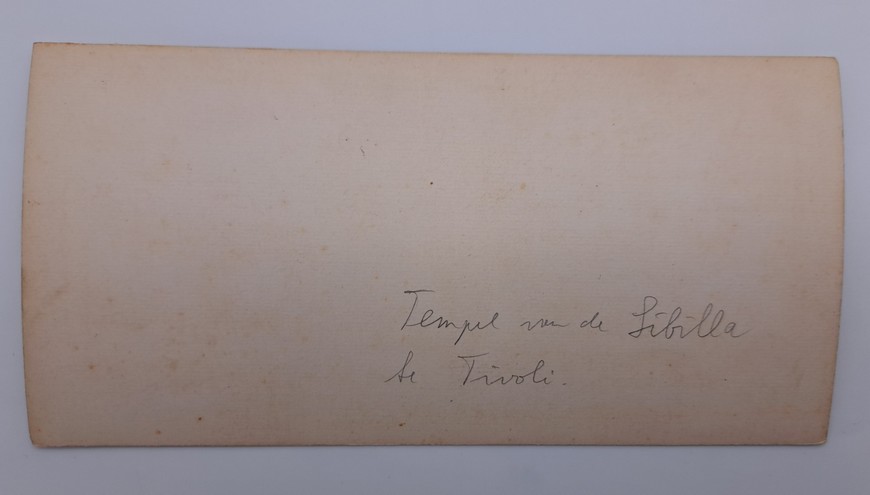 Tempel van de Sibilla
te Tivoli.